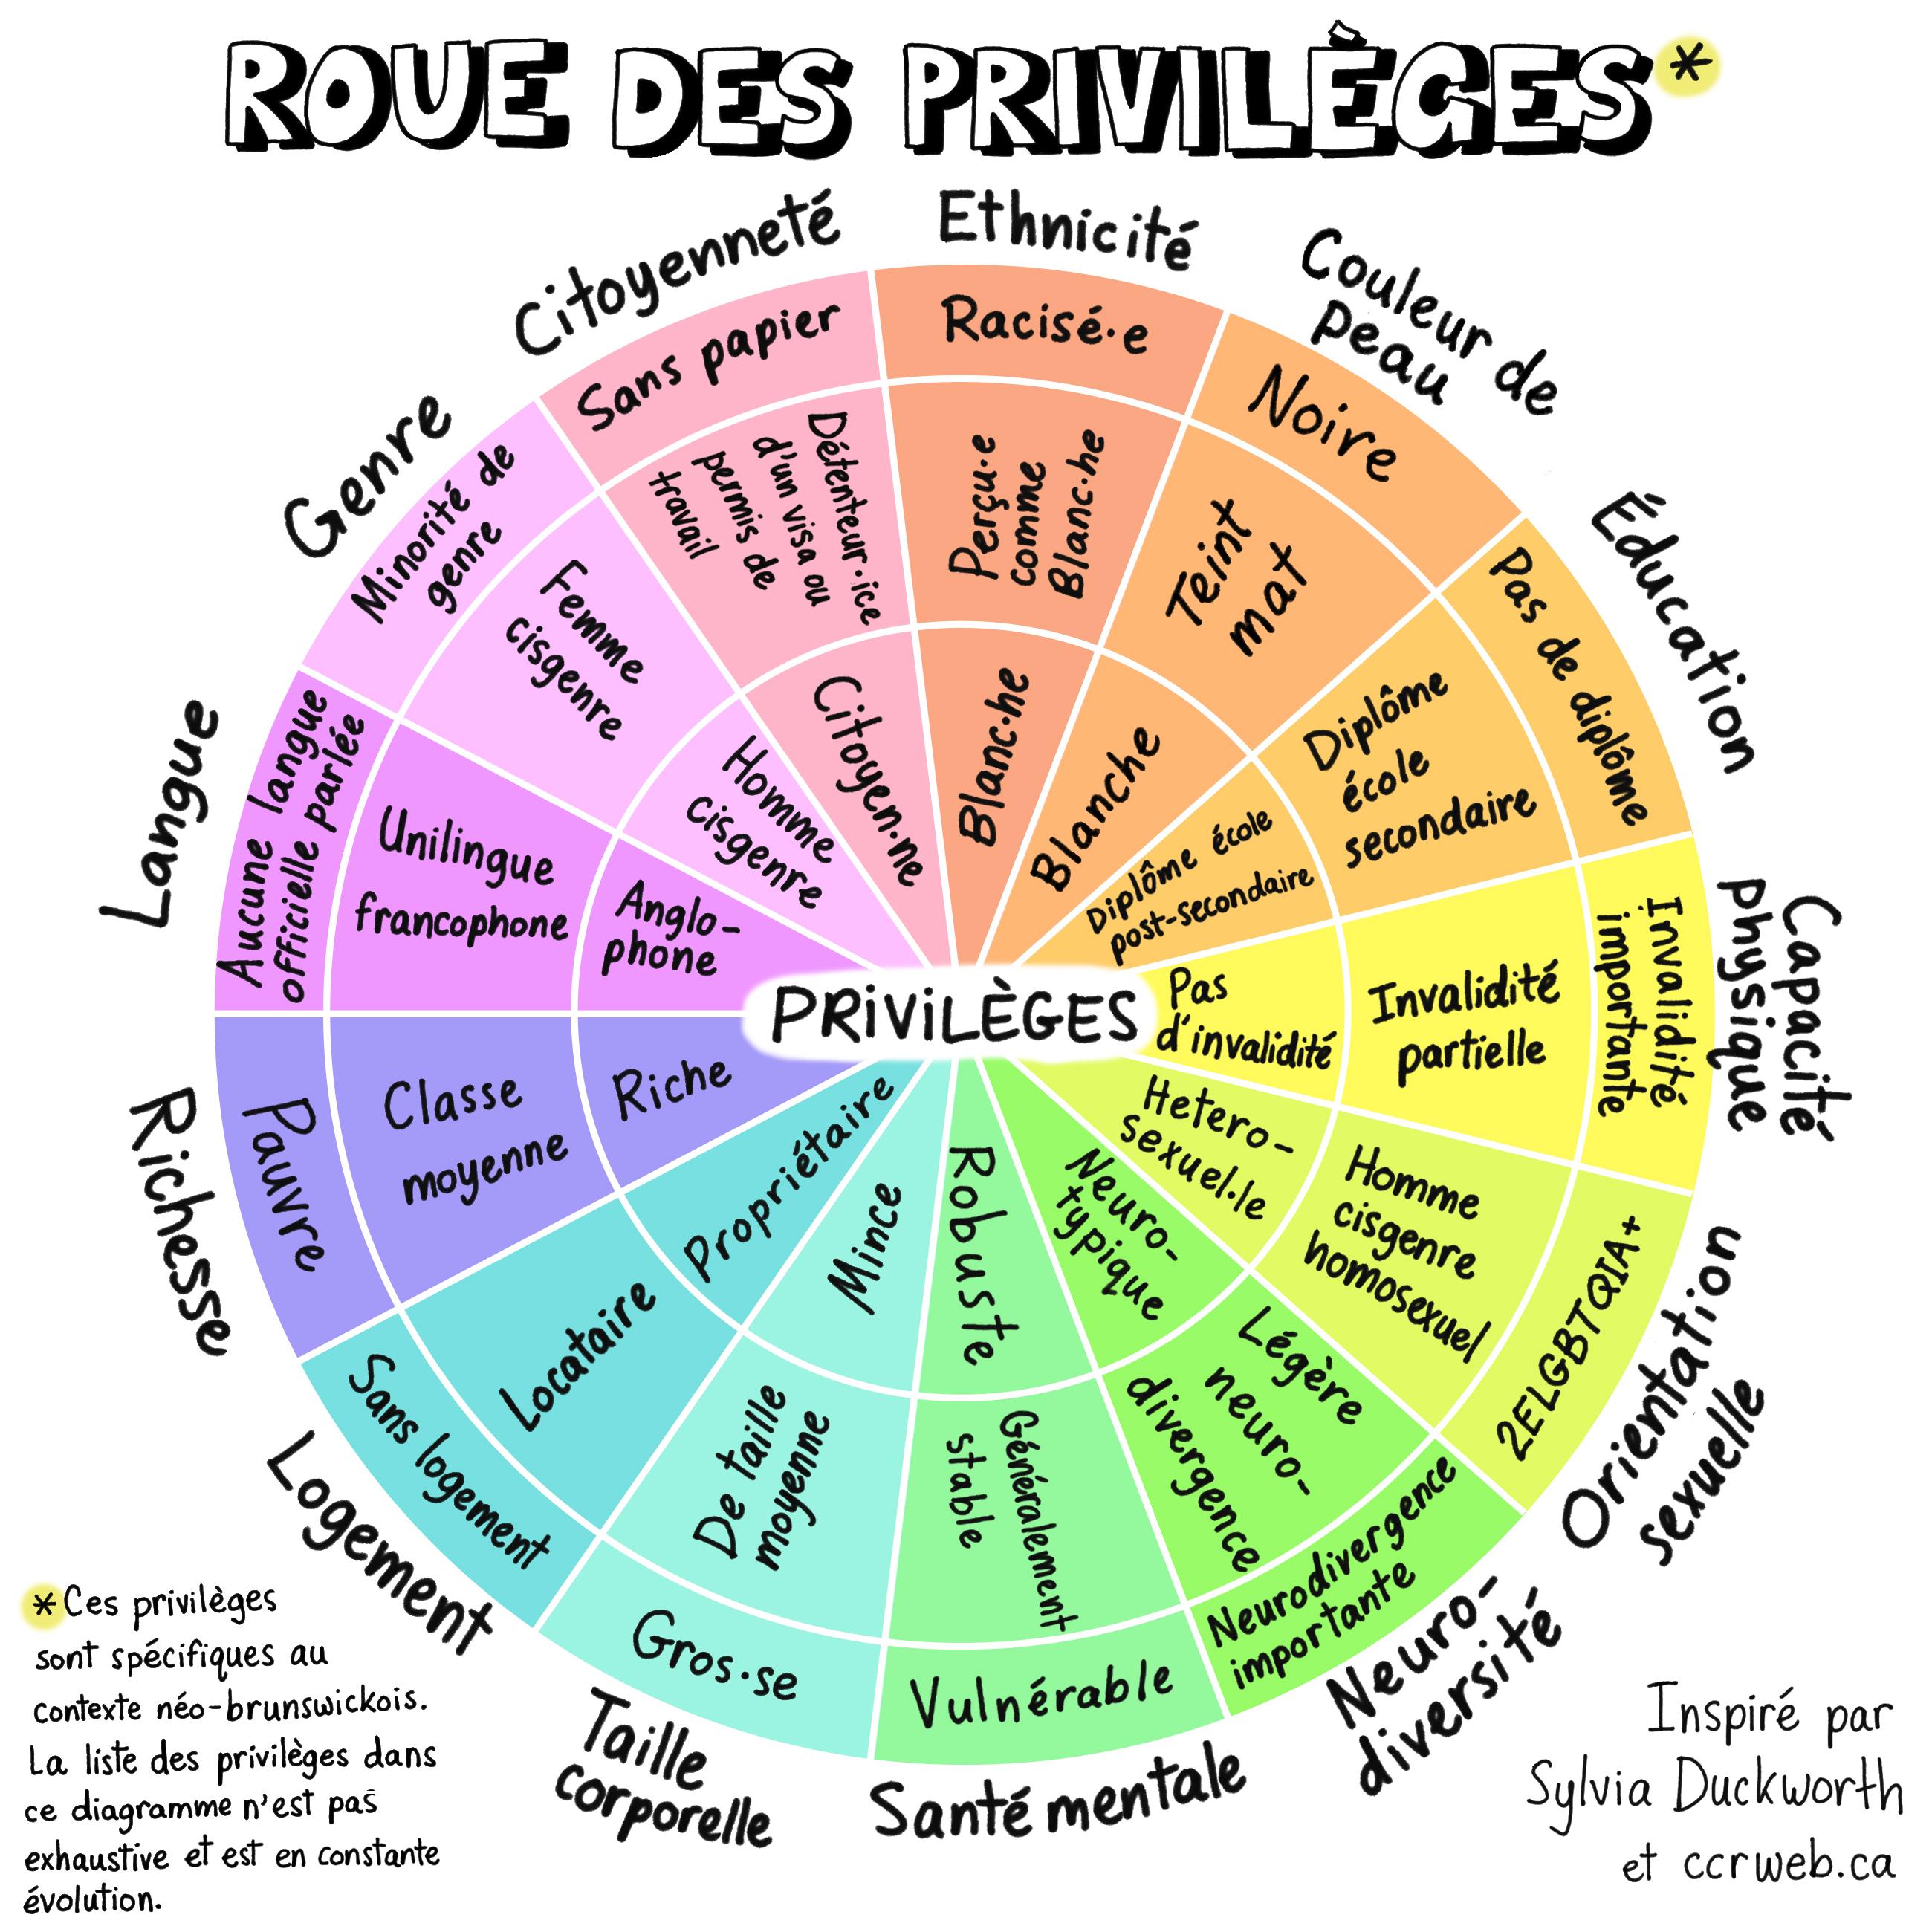 ROUE DES PRIVILÈGES*
Citoyenneté
Sans papier
Détenteur·ice
d'un visa ou
permis de
travail
Citoyen·ne
Ethnicité
Racisé·e
Perçu·e
comme
Blanc·he
Blanc·he
Couleur de
peau
Noire
Teint
mat
Blanche
Éducation
Pas de diplôme
Diplôme
école
secondaire
Diplôme école
post-secondaire
Capacité
physique
Invalidité
importante
Invalidité
partielle
Pas
d'invalidité
Orientation
sexuelle
2ELGBTQIA+
Homme
cisgenre
homosexuel
Hetero-
sexuel·le
Neuro-
diversité
Neurodivergence
importante
Légère
neuro-
divergence
Neuro-
typique
Santé mentale
Vulnérable
Généralement
stable
Robuste
Taille
corporelle
Gros·se
De taille
moyenne
Mince
Logement
Sans logement
Locataire
Propriétaire
Richesse
Pauvre
Classe
moyenne
Riche
Langue
Aucune langue
officielle parlée
Unilingue
francophone
Anglo-
phone
Genre
Minorité de
genre
Femme
cisgenre
Homme
cisgenre
PRIVILÈGES
*Ces privilèges
sont spécifiques au
contexte néo-brunswickois.
La liste des privilèges dans
ce diagramme n'est pas
exhaustive et est en constante
évolution.
Inspiré par
Sylvia Duckworth
et ccrweb.ca